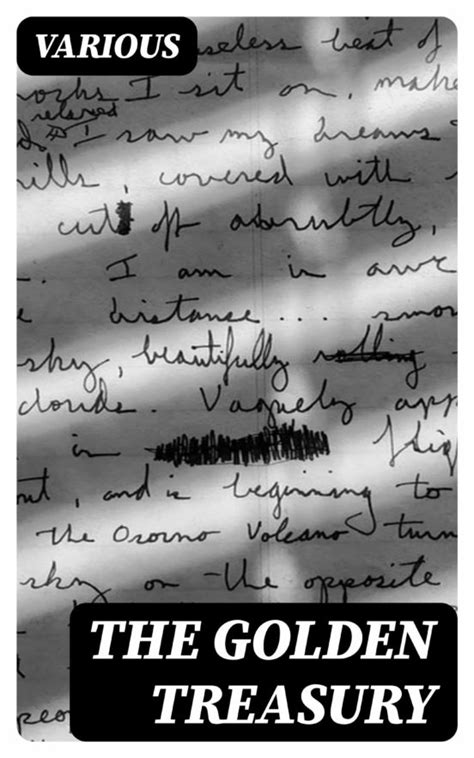 VARIOUS
seless beat of
rocks I sit on, make
relaxed
I saw my dreams
ills, covered with
cut off abruptly,
. I am in awe
e distance.... smo
sky, beautifully rolling
clouds. Vaguely app
in
nt, and is beginning to
the Osorno Volcano turn
sky on the opposite
THE GOLDEN
TREASURY
peo